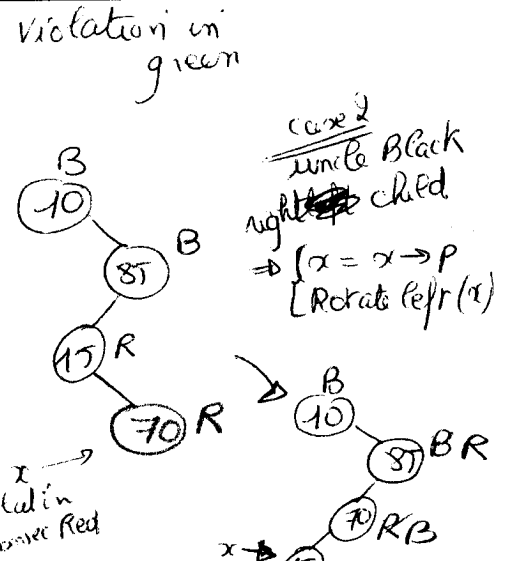 Violation in
green
case 2
uncle Black
right child
⇒ { x = x → P
[ Rotate left (x)
B
10
B
85
15 R
70 R
x →
Red
B
10
85 B R
70 R B
x →
15